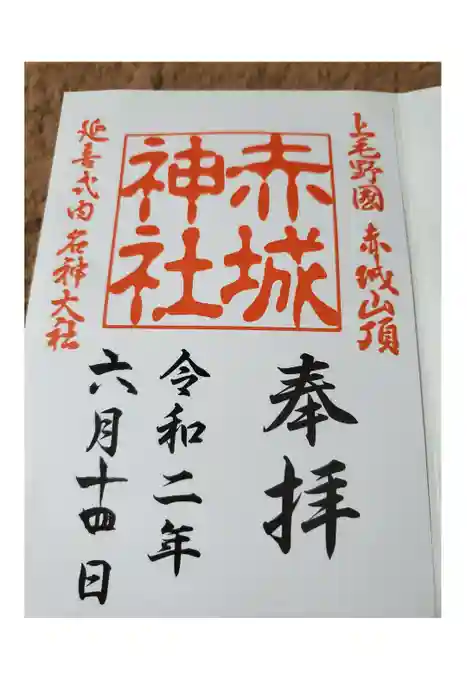 上毛野國 赤城山頂
赤城
神社
延喜式内 名神大社
奉拝
令和二年
六月十四日